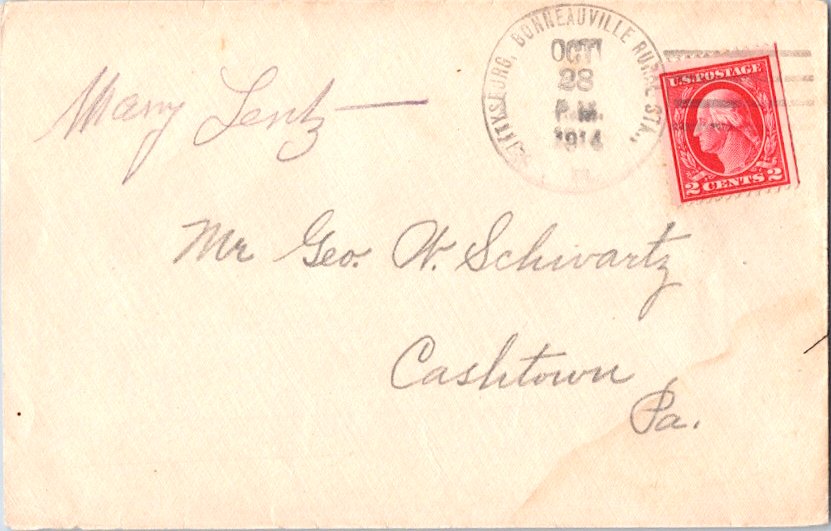 Mary Lentz
GETTYSBURG, BONNEAUVILLE RURAL STA.,
OCT
28
P.M.
1914
U.S. POSTAGE
2 CENTS 2
Mr Geo. W. Schwartz
Cashtown
Pa.